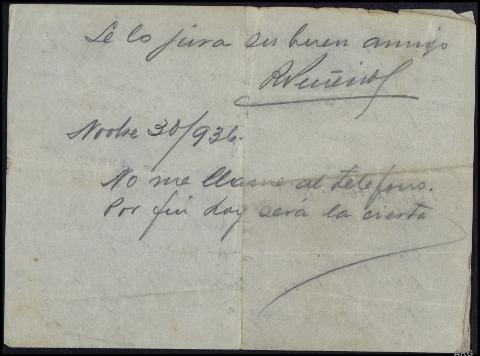 Se lo jura su buen amigo
R Piñeiro
Novbre 30/936.
No me llame al telefono.
Por fin hoy será la cierta